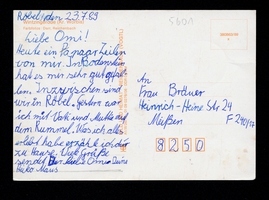 Röbel, den 23.7.89
Liebe Omi!
Heute ein paar Zeilen
von mir. In Bodenstein
hat es mir sehr gut gefal-
len. Inzwischen sind
wir in Röbel. Gestern war
ich mit Vati und Mutti auf
dem Rummel. Was ich alles
erlebt habe erzähle ich dir
zu Hause. Viele Grüße
sendet Dir liebe Omi Deine
Maus
5601
An
Frau Brötner
Heinrich-Heine Str 24
Meißen
8250